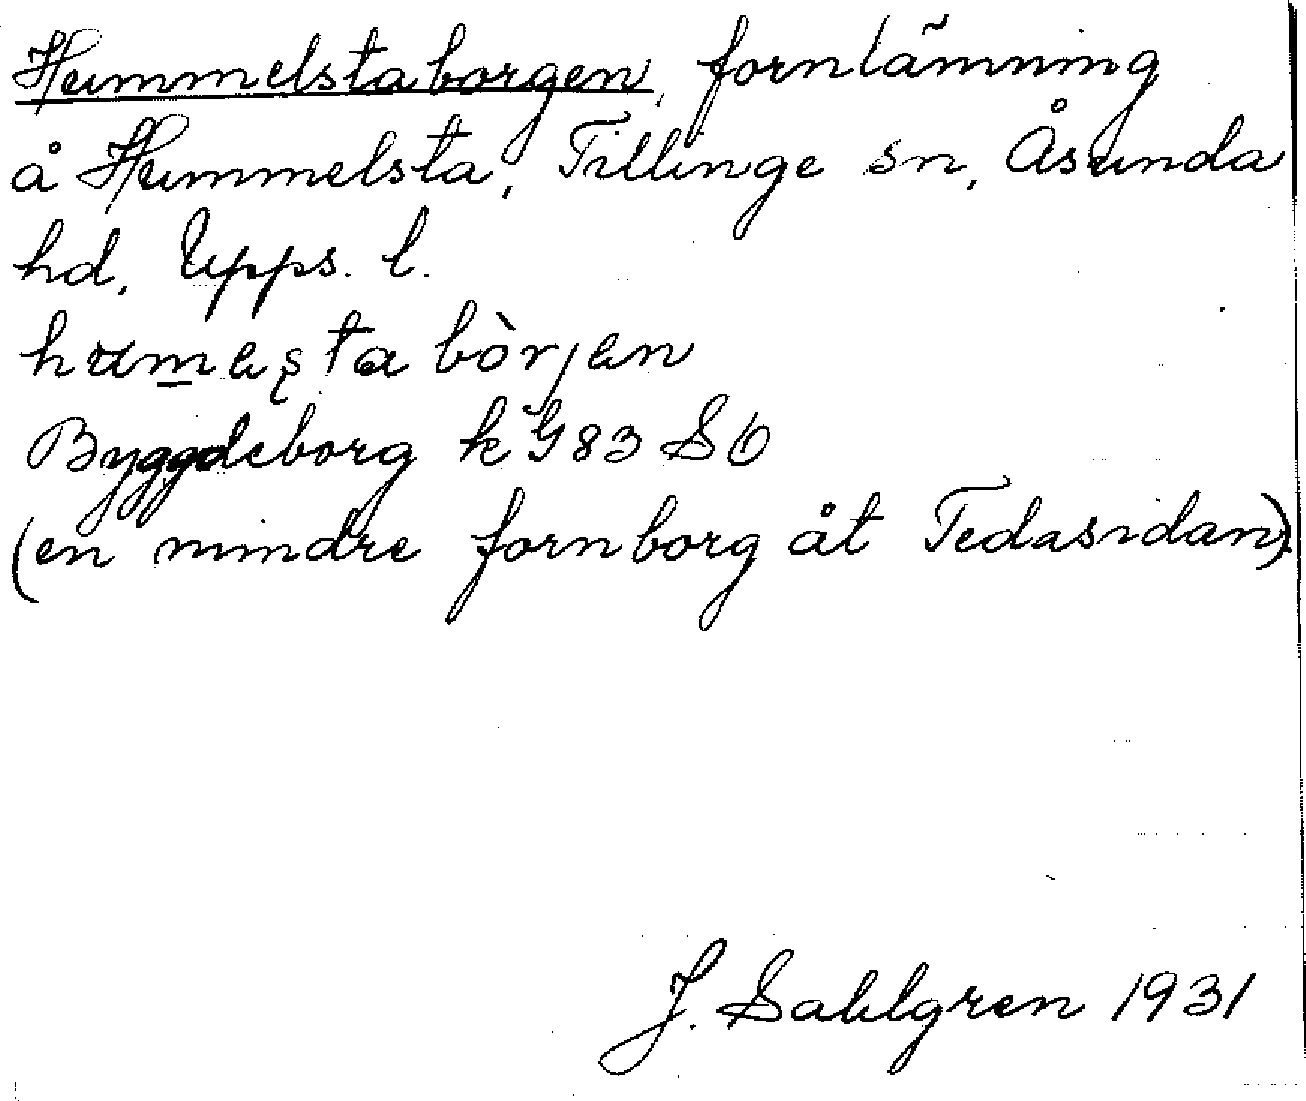 Hummelstaborgen, fornlämning
å Hummelsta, Tillinge sn, Åsunda
hd, Upps. l.
bòrjen
Byggdeborg k G83 S6
(en mindre fornborg åt Tedasidan)
J. Sahlgren 1931